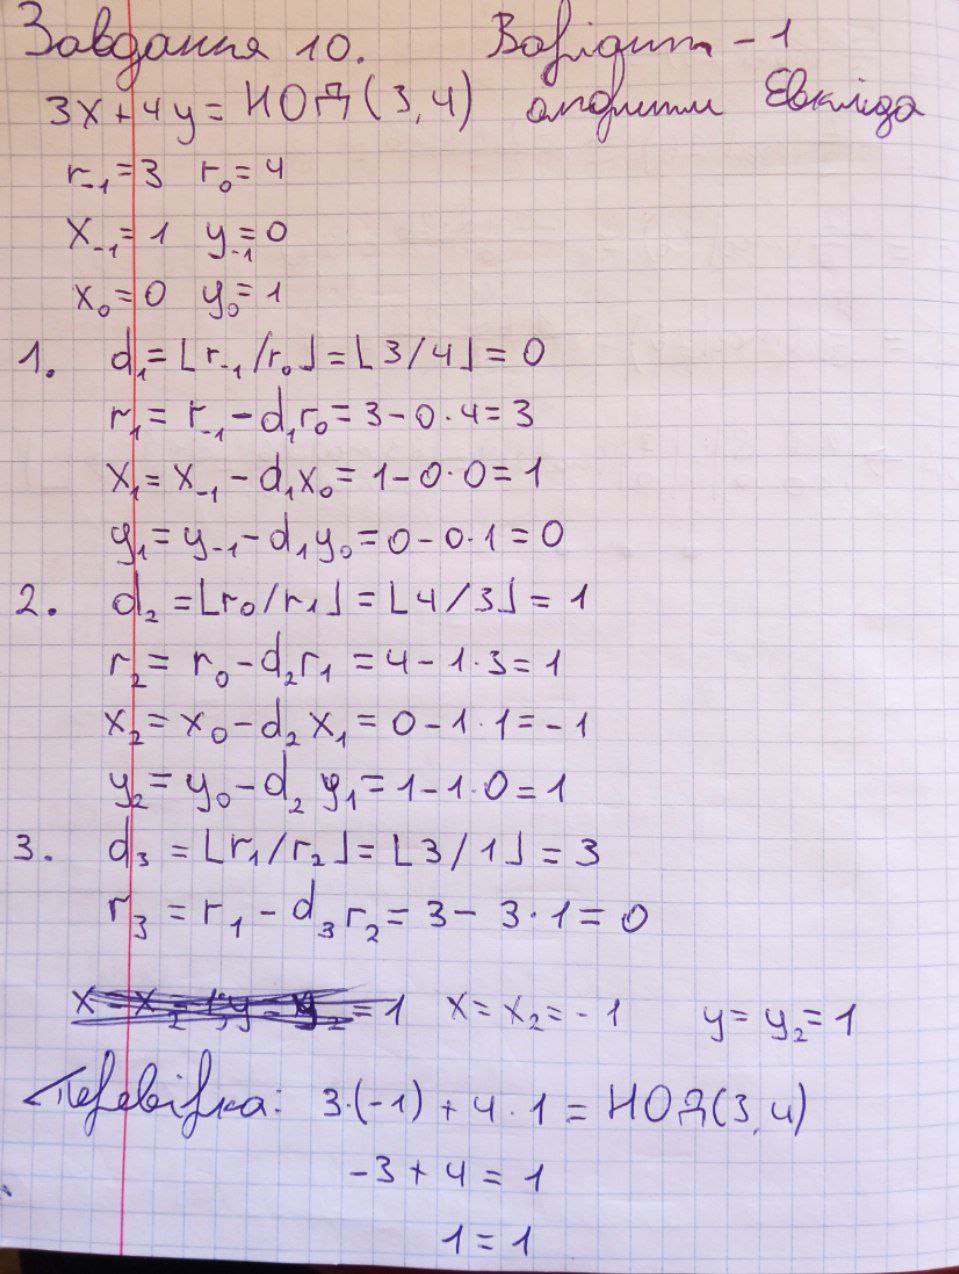 Завдання 10. Варіант - 1
3x+4y= НОД(3,4) алгоритм Евкліда
r₋₁=3 r₀=4
x₋₁=1 y₋₁=0
x₀=0 y₀=1
1. d₁=⌊r₋₁/r₀⌋=⌊3/4⌋=0
r₁=r₋₁-d₁r₀=3-0·4=3
x₁=x₋₁-d₁x₀=1-0·0=1
y₁=y₋₁-d₁y₀=0-0·1=0
2. d₂=⌊r₀/r₁⌋=⌊4/3⌋=1
r₂=r₀-d₂r₁=4-1·3=1
x₂=x₀-d₂x₁=0-1·1=-1
y₂=y₀-d₂y₁=1-1·0=1
3. d₃=⌊r₁/r₂⌋=⌊3/1⌋=3
r₃=r₁-d₃r₂=3-3·1=0
=1 x=x₂=-1 y=y₂=1
Перевірка: 3·(-1)+4·1=НОД(3,4)
-3+4=1
1=1